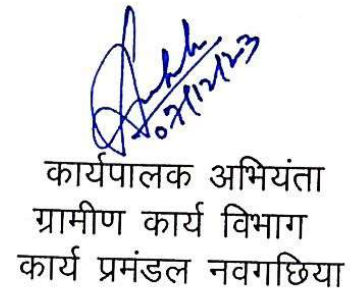 07/12/23
कार्यपालक अभियंता
ग्रामीण कार्य विभाग
कार्य प्रमंडल नवगछिया